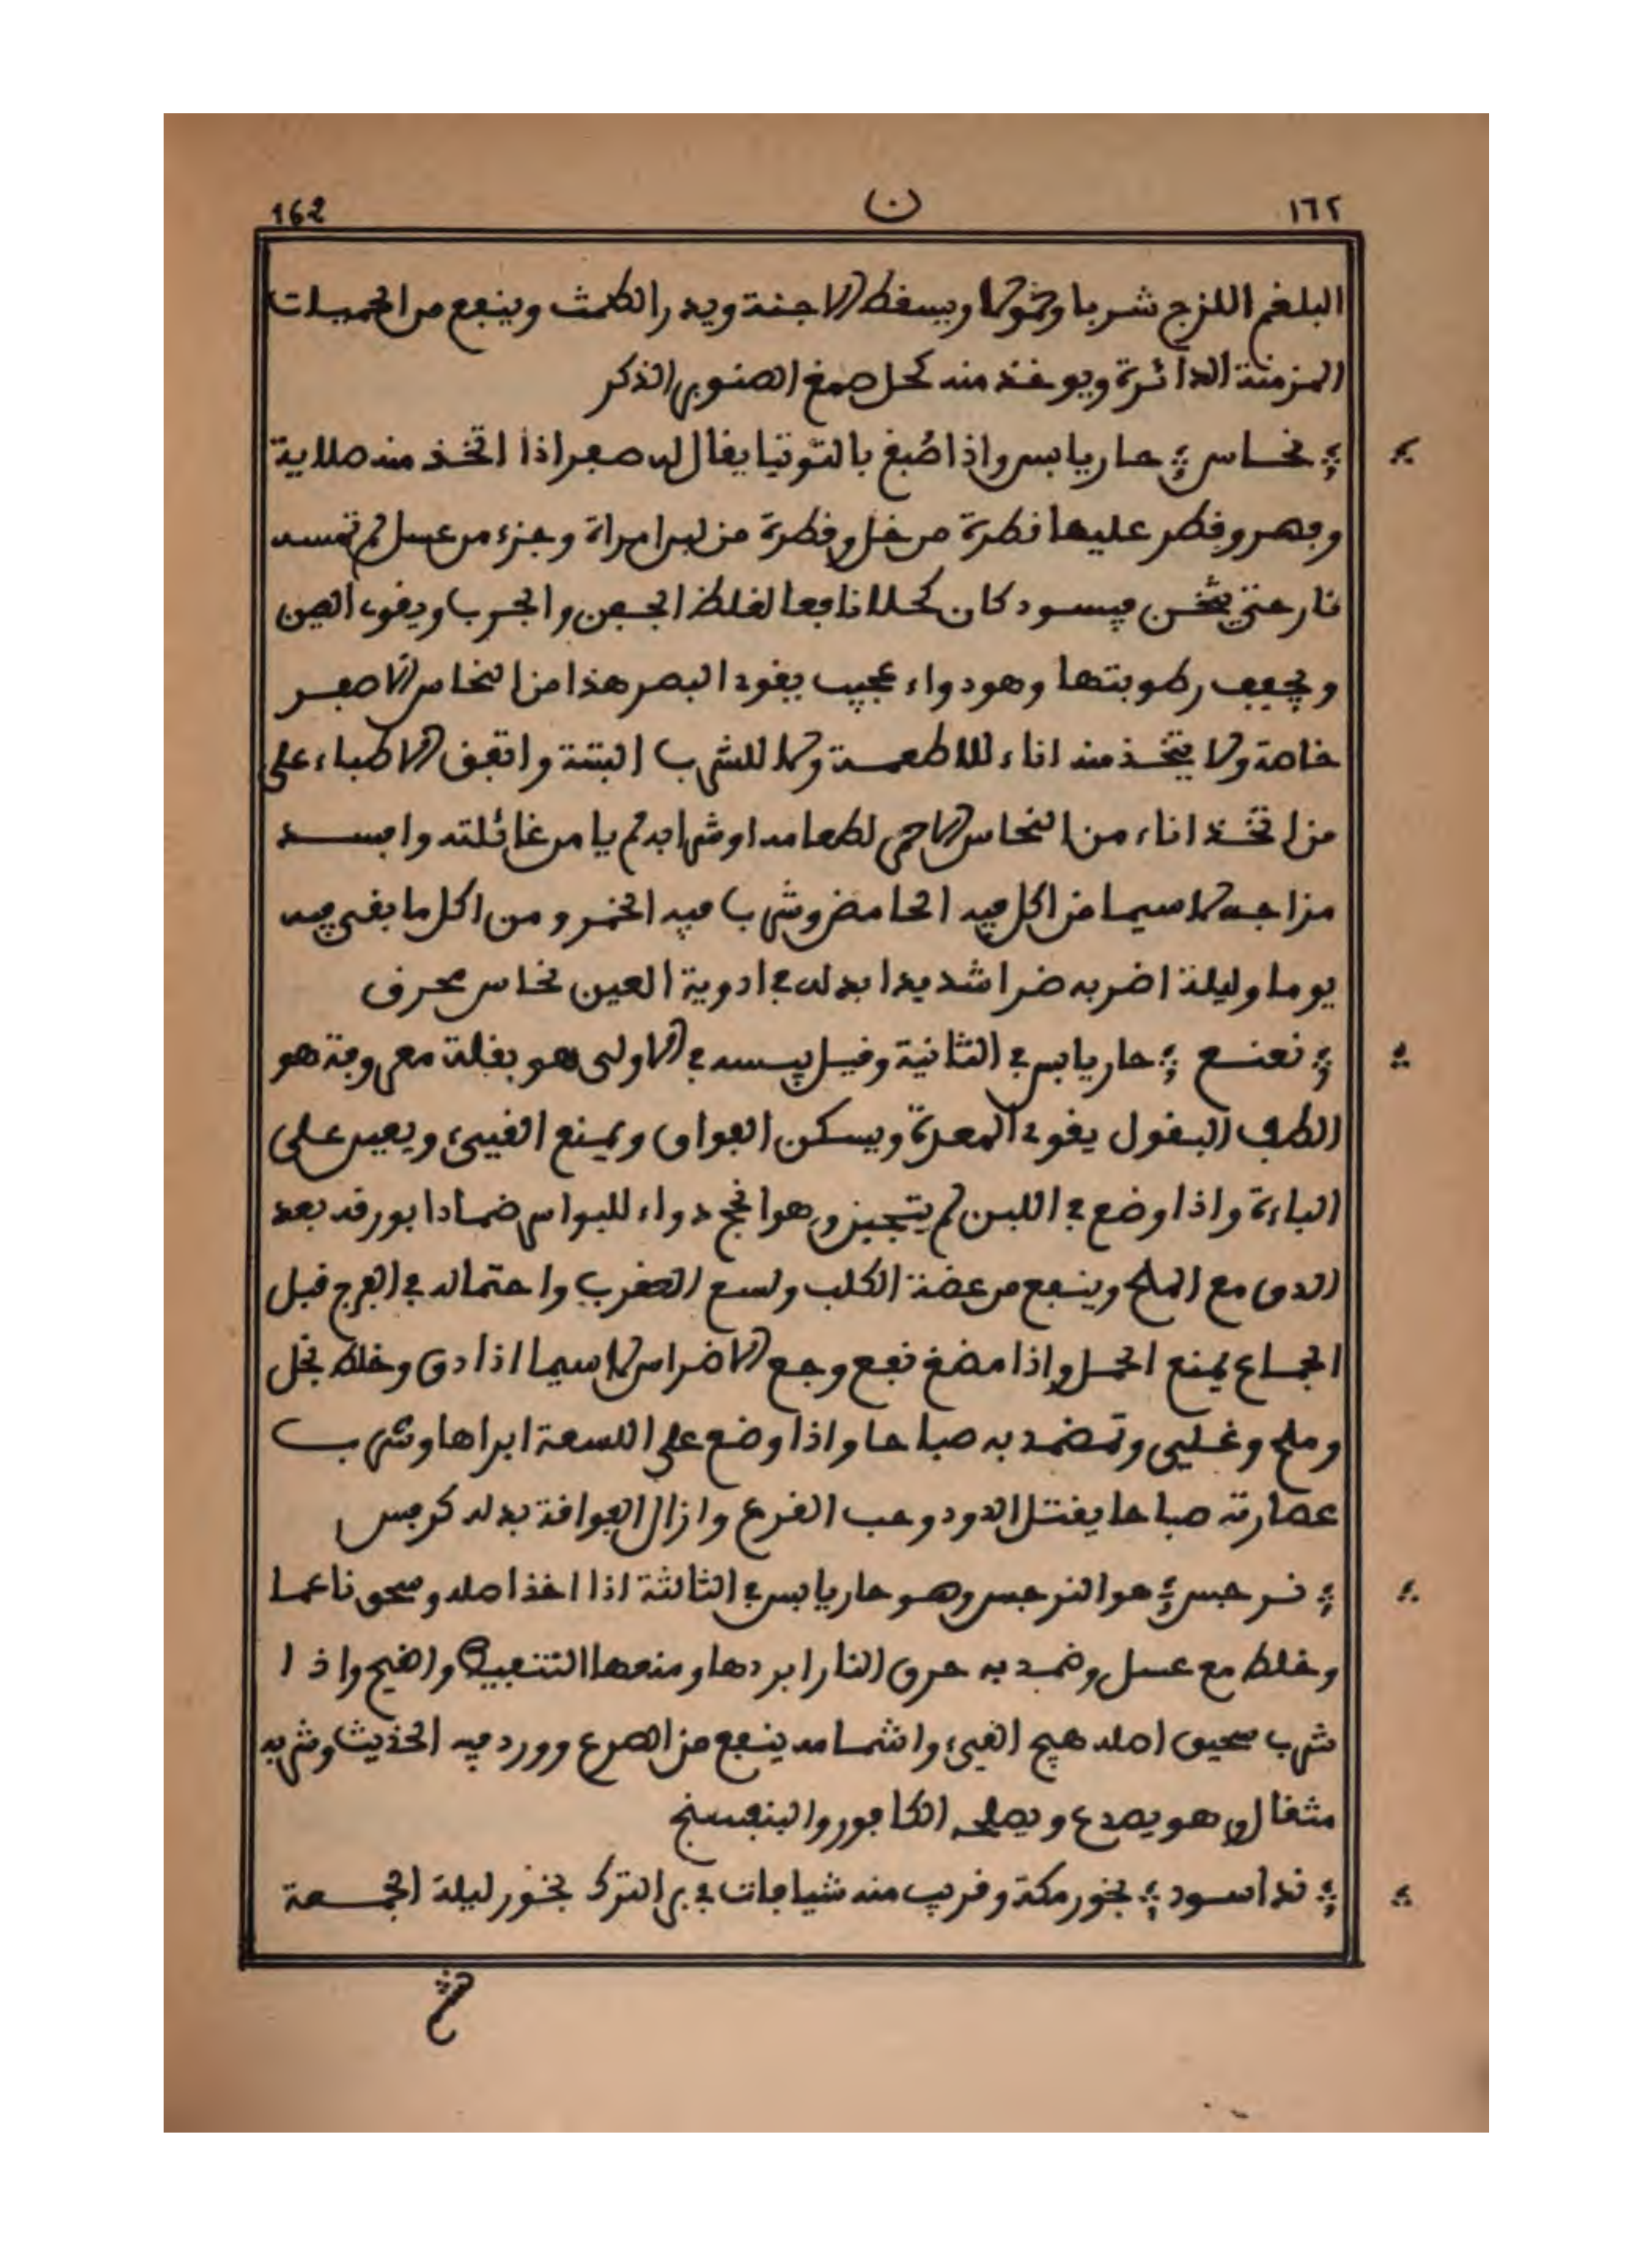 162 ن ١٦٢
البلغم اللزج شربا وحمولا ويسقط الاجنة ويدر الطمث وينفع من الحميات
المزمنة الدائرة ويوخذ منه كحل صمغ الصنوبر الذكر
نحاس حار يابس واذا صُبغ بالتوتيا يقال له صفر اذا اتخذ منه صلاية
وفهر وقطر عليها قطرة من خل وقطرة من لبن امراة وجزء من عسل لم تمسه
نار حتى يثخن فيسود كان كحلا نافعا لغلظ الجفن والجرب ويقوي العين
ويجفف رطوبتها وهو دواء عجيب يقوي البصر هذا من النحاس الاصفر
خاصة ولا يتخذ منه اناء للاطعمة ولا للشرب البتة واتفق الاطباء على
من اتخذ اناء من النحاس الاحمر لطعامه او شرابه لم يامن غائلته وافسد
مزاجه لا سيما من اكل فيه الحامض وشرب فيه الخمر ومن اكل ما بقي فيه
يوما وليلة اضر به ضرا شديدا بدله في ادوية العين نحاس محرق
نعنع حار يابس في الثانية وقيل يبسه في الاولى هو بقلة معروفة هو
الطف البقول يقوي المعدة ويسكن الفواق ويمنع القيىء ويعين على
الباءة واذا وضع في اللبن لم يتجبن وهو انجح دواء للبواسر ضمادا بورقه بعد
الدق مع الملح وينفع من عضة الكلب ولسع العقرب واحتماله في الفرج قبل
الجماع يمنع الحمل واذا مضغ نفع وجع الاضراس لا سيما اذا دق وخلط بخل
وملح وغليى وتضمد به صباحا واذا وضع على اللسعة ابراها وشرب
عصارته صباحا يقتل الدود وحب القرع وازال الفواقة بدله كرفس
نرجس هو النرجس وهو حار يابس في الثالثة اذا اخذ اصله وسحق ناعما
وخلط مع عسل وضمد به حرق النار ابردها ومنعها التنفيط والقيح واذا
شرب سحيق اصله هيج القيىء واشمامه ينفع من الصرع وورد فيه الحديث وشربه
مثقال وهو يصدع ويصلحه الكافور والبنفسنج
ند اسود بخور مكة وقريب منه شيافات في بر الترك بخور ليلة الجمعة